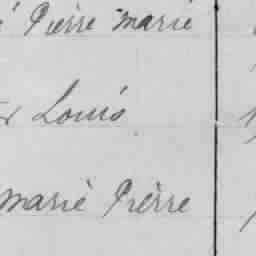 Pierre Marie
Louis
Marie Pierre